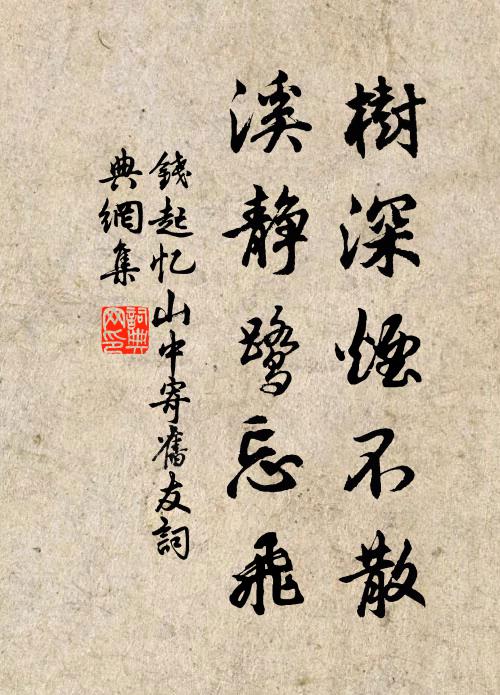 樹深煙不散
溪静鹭忘飛
錢起忆山中寄舊友詞
典網集
詞典
网印